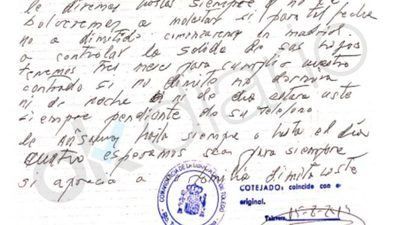 le diremos hasta siempre y no le
bolveremos a molestar si para tal fecha
no a dimitido comenzaremos en madrid
a controlar la salida de sas hijos
tenemos tres meses para cumplir nuestro
contrado si no dimite no dormira
ni de noche ni de dia estara uste
siempre pendiente de su telefono
le hasta siempre o hasta el dia
cuatro esperamos sea para siempre
si aprecia a familia dimita uste
COTEJADO: coincide con e
original.
Talavera
okdiario